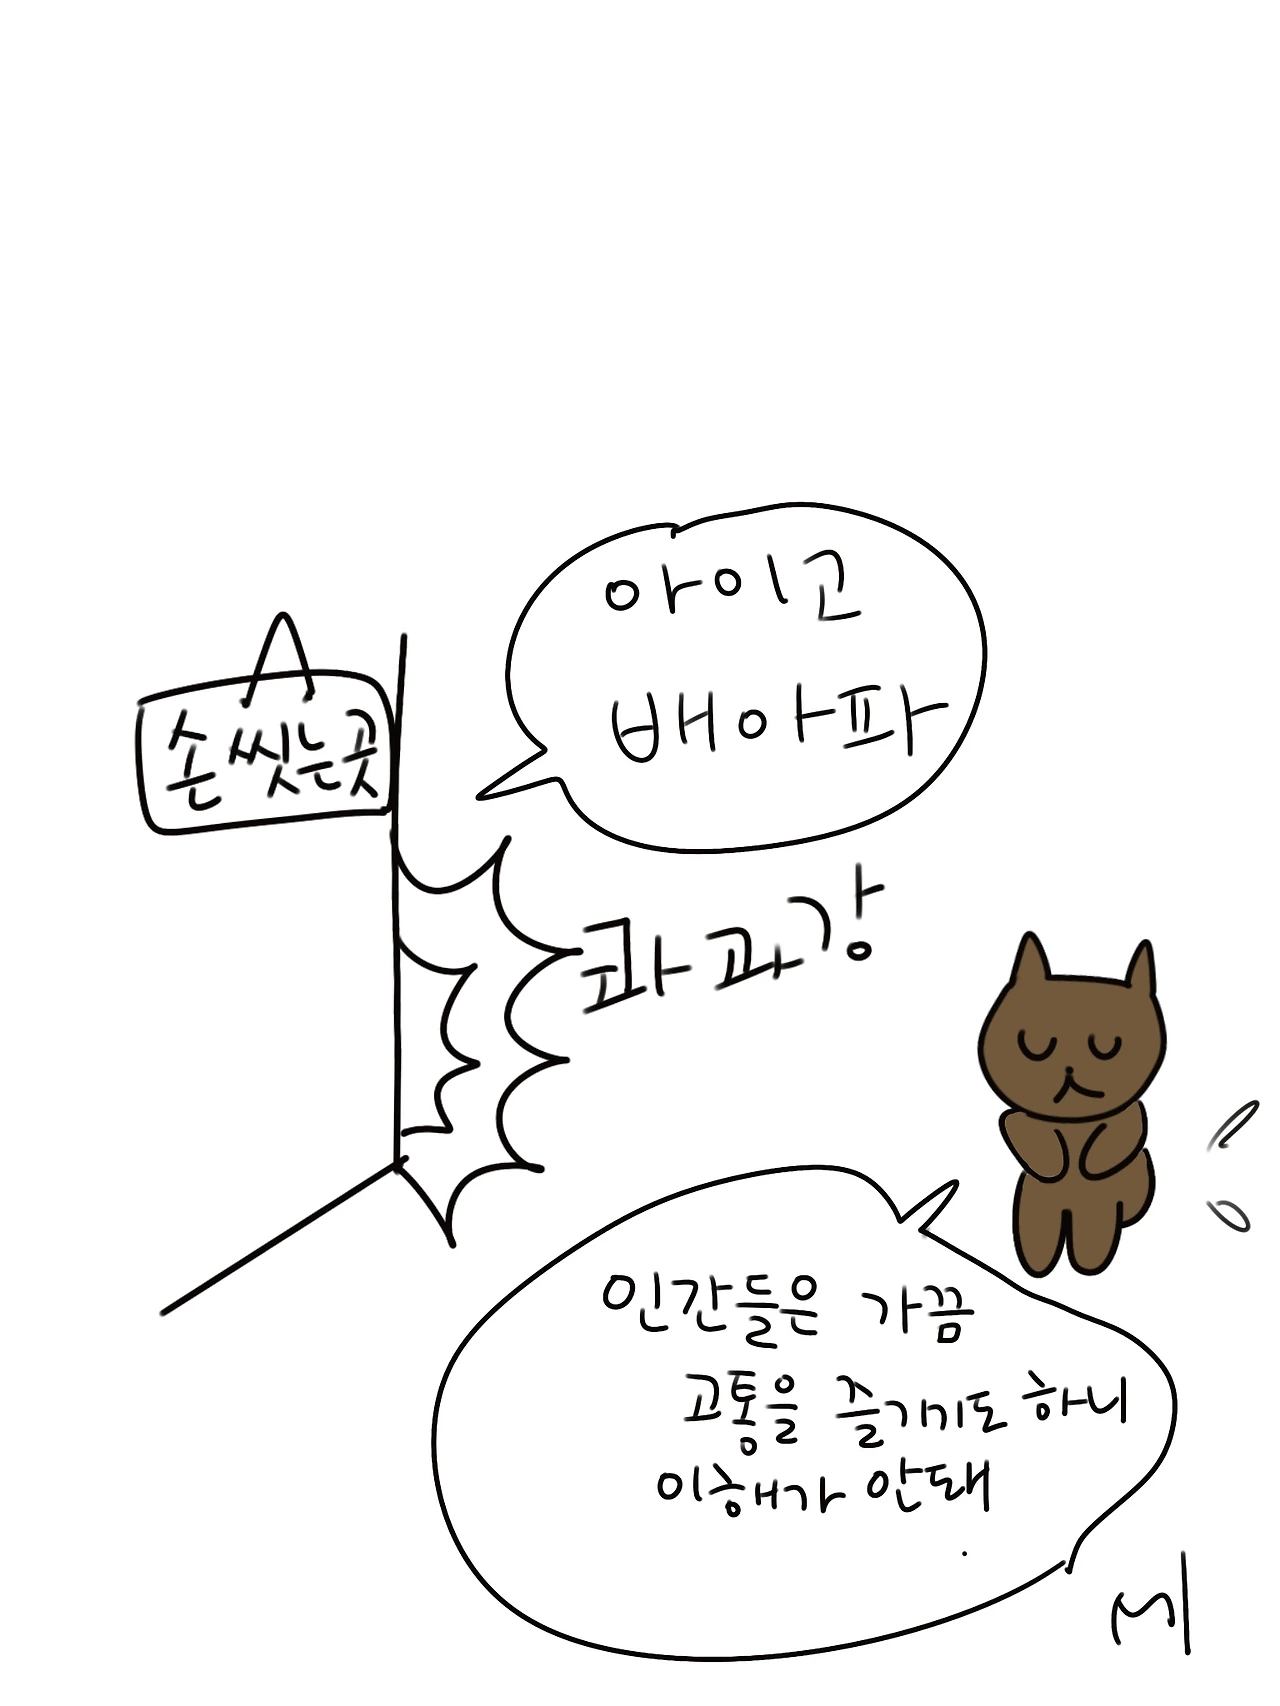 아이고
배아파
손 씻는곳
콰과강
인간들은 가끔
고통을 즐기기도 하니
이해가 안돼